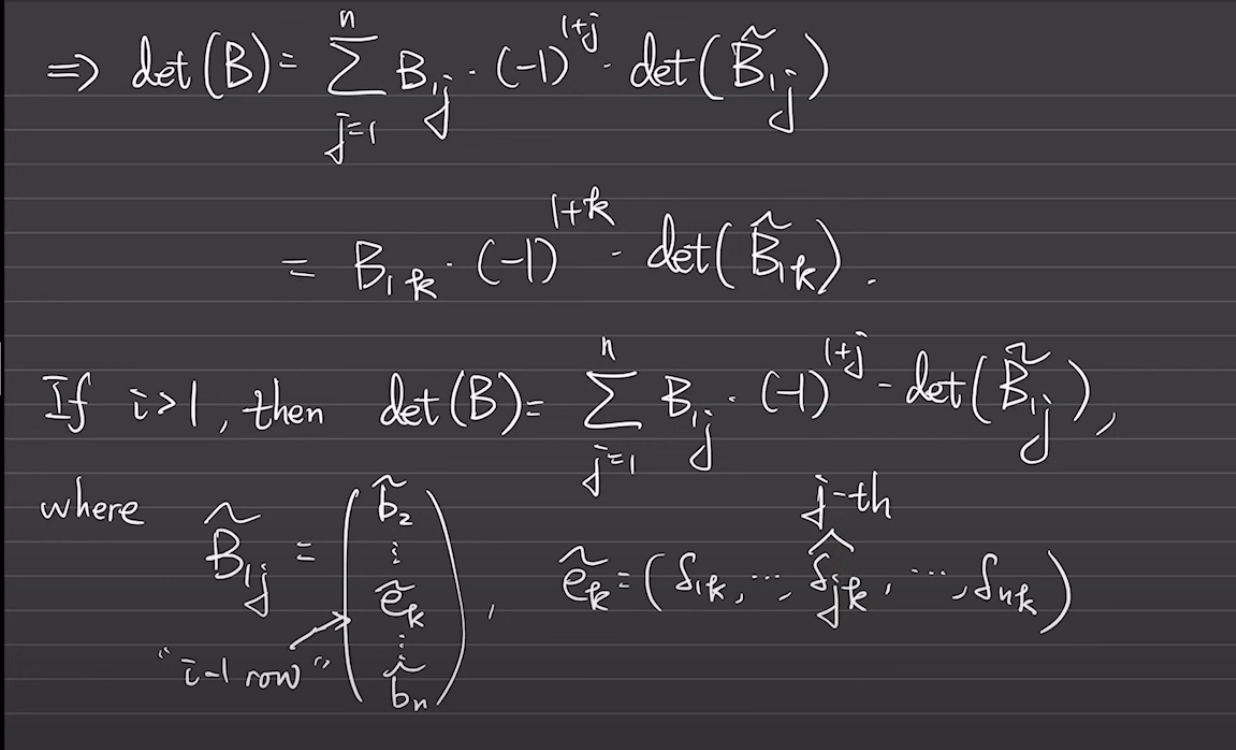 ⇒ det(B) = \sum_{j=1}^{n} B_{1j} · (-1)^{1+j} · det(\tilde{B}_{1j})
= B_{1k} · (-1)^{1+k} · det(\tilde{B}_{1k}).
If i>1, then det(B) = \sum_{j=1}^{n} B_{1j} · (-1)^{1+j} · det(\tilde{B}_{1j}),
where \tilde{B}_{1j} = \begin{pmatrix} \tilde{b}_2 \\ \vdots \\ \tilde{e}_k \\ \vdots \\ \tilde{b}_n \end{pmatrix}, \tilde{e}_k = (δ_{1k}, ..., \overset{j-th}{\hat{δ}_{jk}}, ..., δ_{nk})
"i-1 row" →